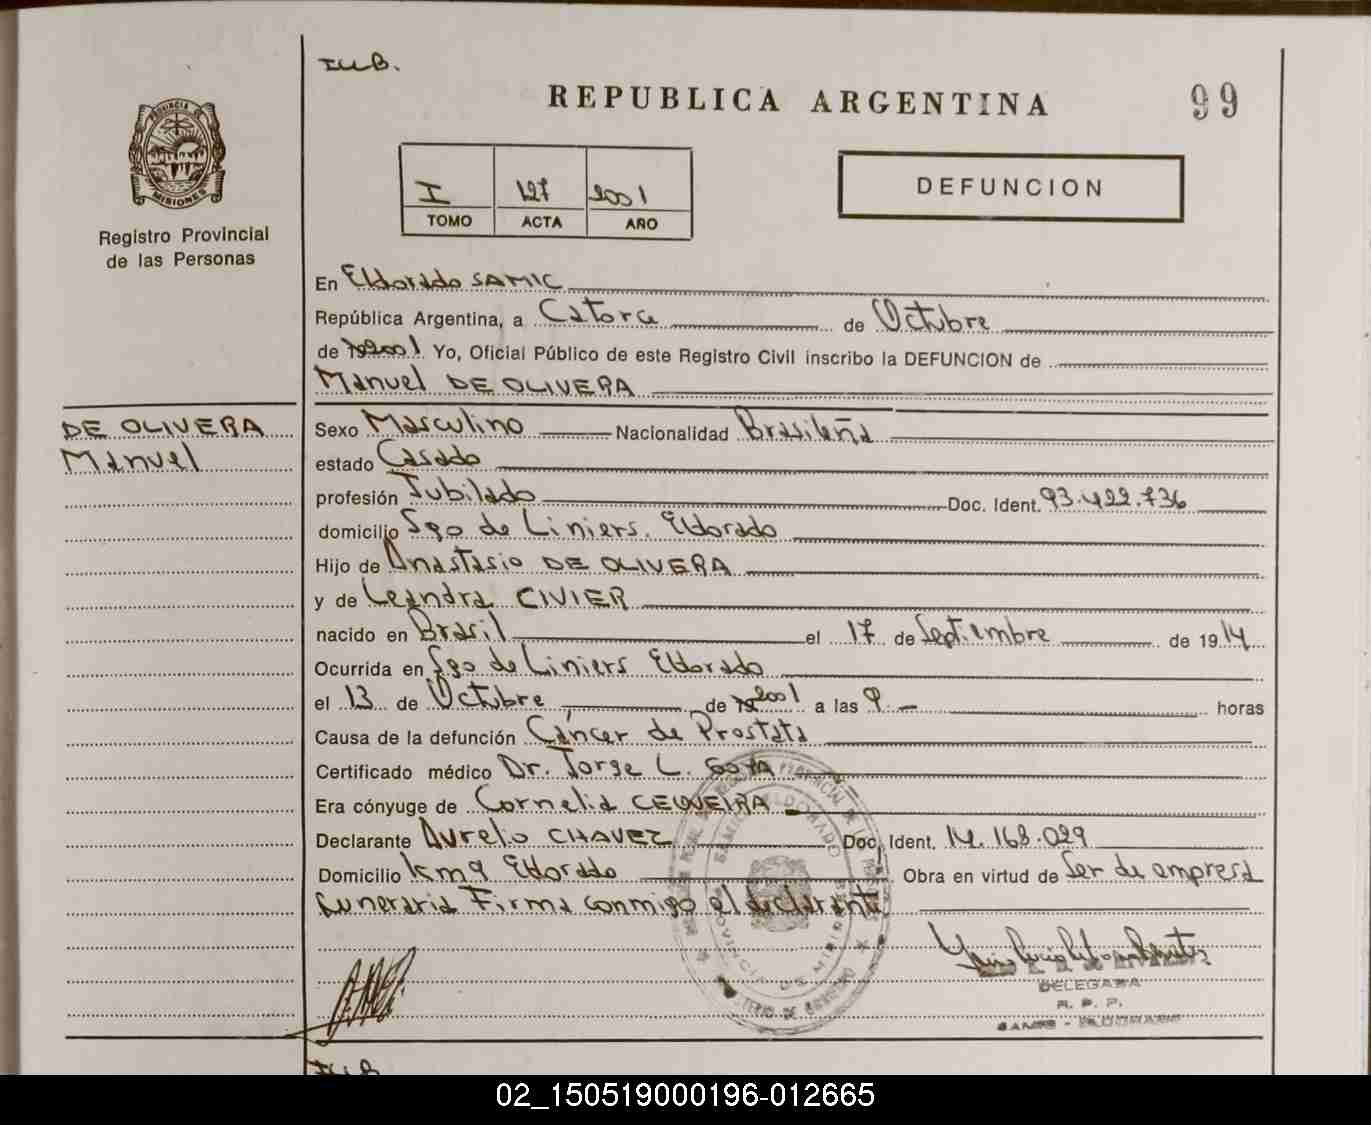 I.U.B.
REPUBLICA ARGENTINA
99
PROVINCIA DE MISIONES
Registro Provincial
de las Personas
I 127 2001
TOMO ACTA AÑO
DEFUNCION
En Eldorado SAMIC
República Argentina, a Catorce de Octubre
de 2001 Yo, Oficial Público de este Registro Civil inscribo la DEFUNCION de
Manuel DE OLIVERA
DE OLIVERA
Manuel
Sexo Masculino Nacionalidad Brasileña
estado Casado
profesión Jubilado Doc. Ident. 93.422.736
domicilio Sgo de Liniers. Eldorado
Hijo de Anastasio DE OLIVERA
y de Leandra CIVIER
nacido en Brasil el 17 de Septiembre de 1914
Ocurrida en Sgo de Liniers Eldorado
el 13 de Octubre de 2001 a las 9 horas
Causa de la defunción Cáncer de Prostata
Certificado médico Dr. Jorge L. GOYA
Era cónyuge de Cornelia CEQUEIRA
Declarante Aurelio CHAVEZ Doc. Ident. 14.168.029
Domicilio km 9 Eldorado Obra en virtud de Ser de empresa
funeraria Firma conmigo el declarante
PROVINCIA DE MISIONES
DELEGADA
R. P. P.
SAMIC - ELDORADO
I.U.B
02_150519000196-012665